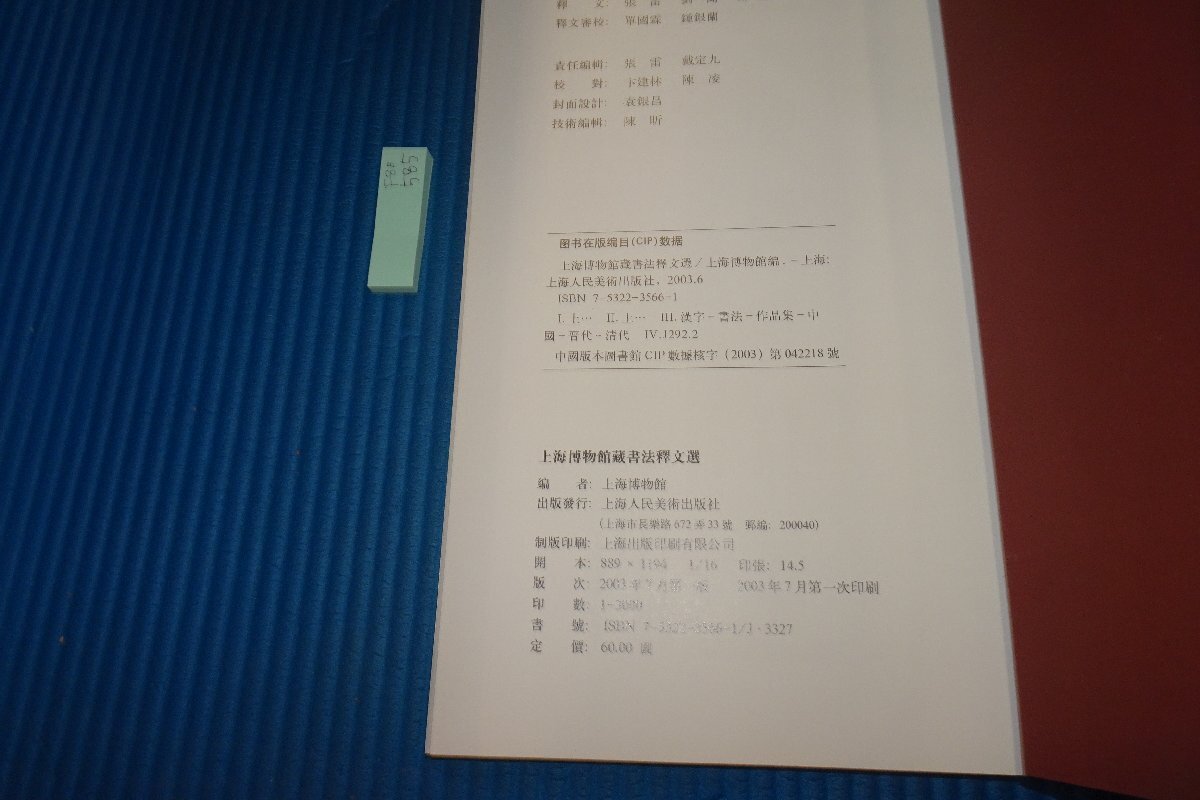 釋 文: 張 雷
釋文審校: 單國霖 鍾銀蘭
責任編輯: 張 雷 戴定九
校 對: 卞建林 陳 凌
封面設計: 袁銀昌
技術編輯: 陳 昕
F8B
585
图书在版编目(CIP)数据
上海博物館藏書法釋文選／上海博物館編．－上海:
上海人民美術出版社，2003.6
ISBN 7-5322-3566-1
I.上… II.上… III.漢字－書法－作品集－中
國－晉代-清代 IV.J292.2
中國版本圖書館CIP數據核字（2003）第042218號
上海博物館藏書法釋文選
編 者: 上海博物館
出版發行: 上海人民美術出版社
（上海市長樂路672弄33號 郵編: 200040）
制版印刷: 上海出版印刷有限公司
開 本: 889×1194 1/16 印張: 14.5
版 次: 2003年7月第一版 2003年7月第一次印刷
印 數: 1-3000
書 號: ISBN 7-5322-3566-1/J·3327
定 價: 60.00 圓